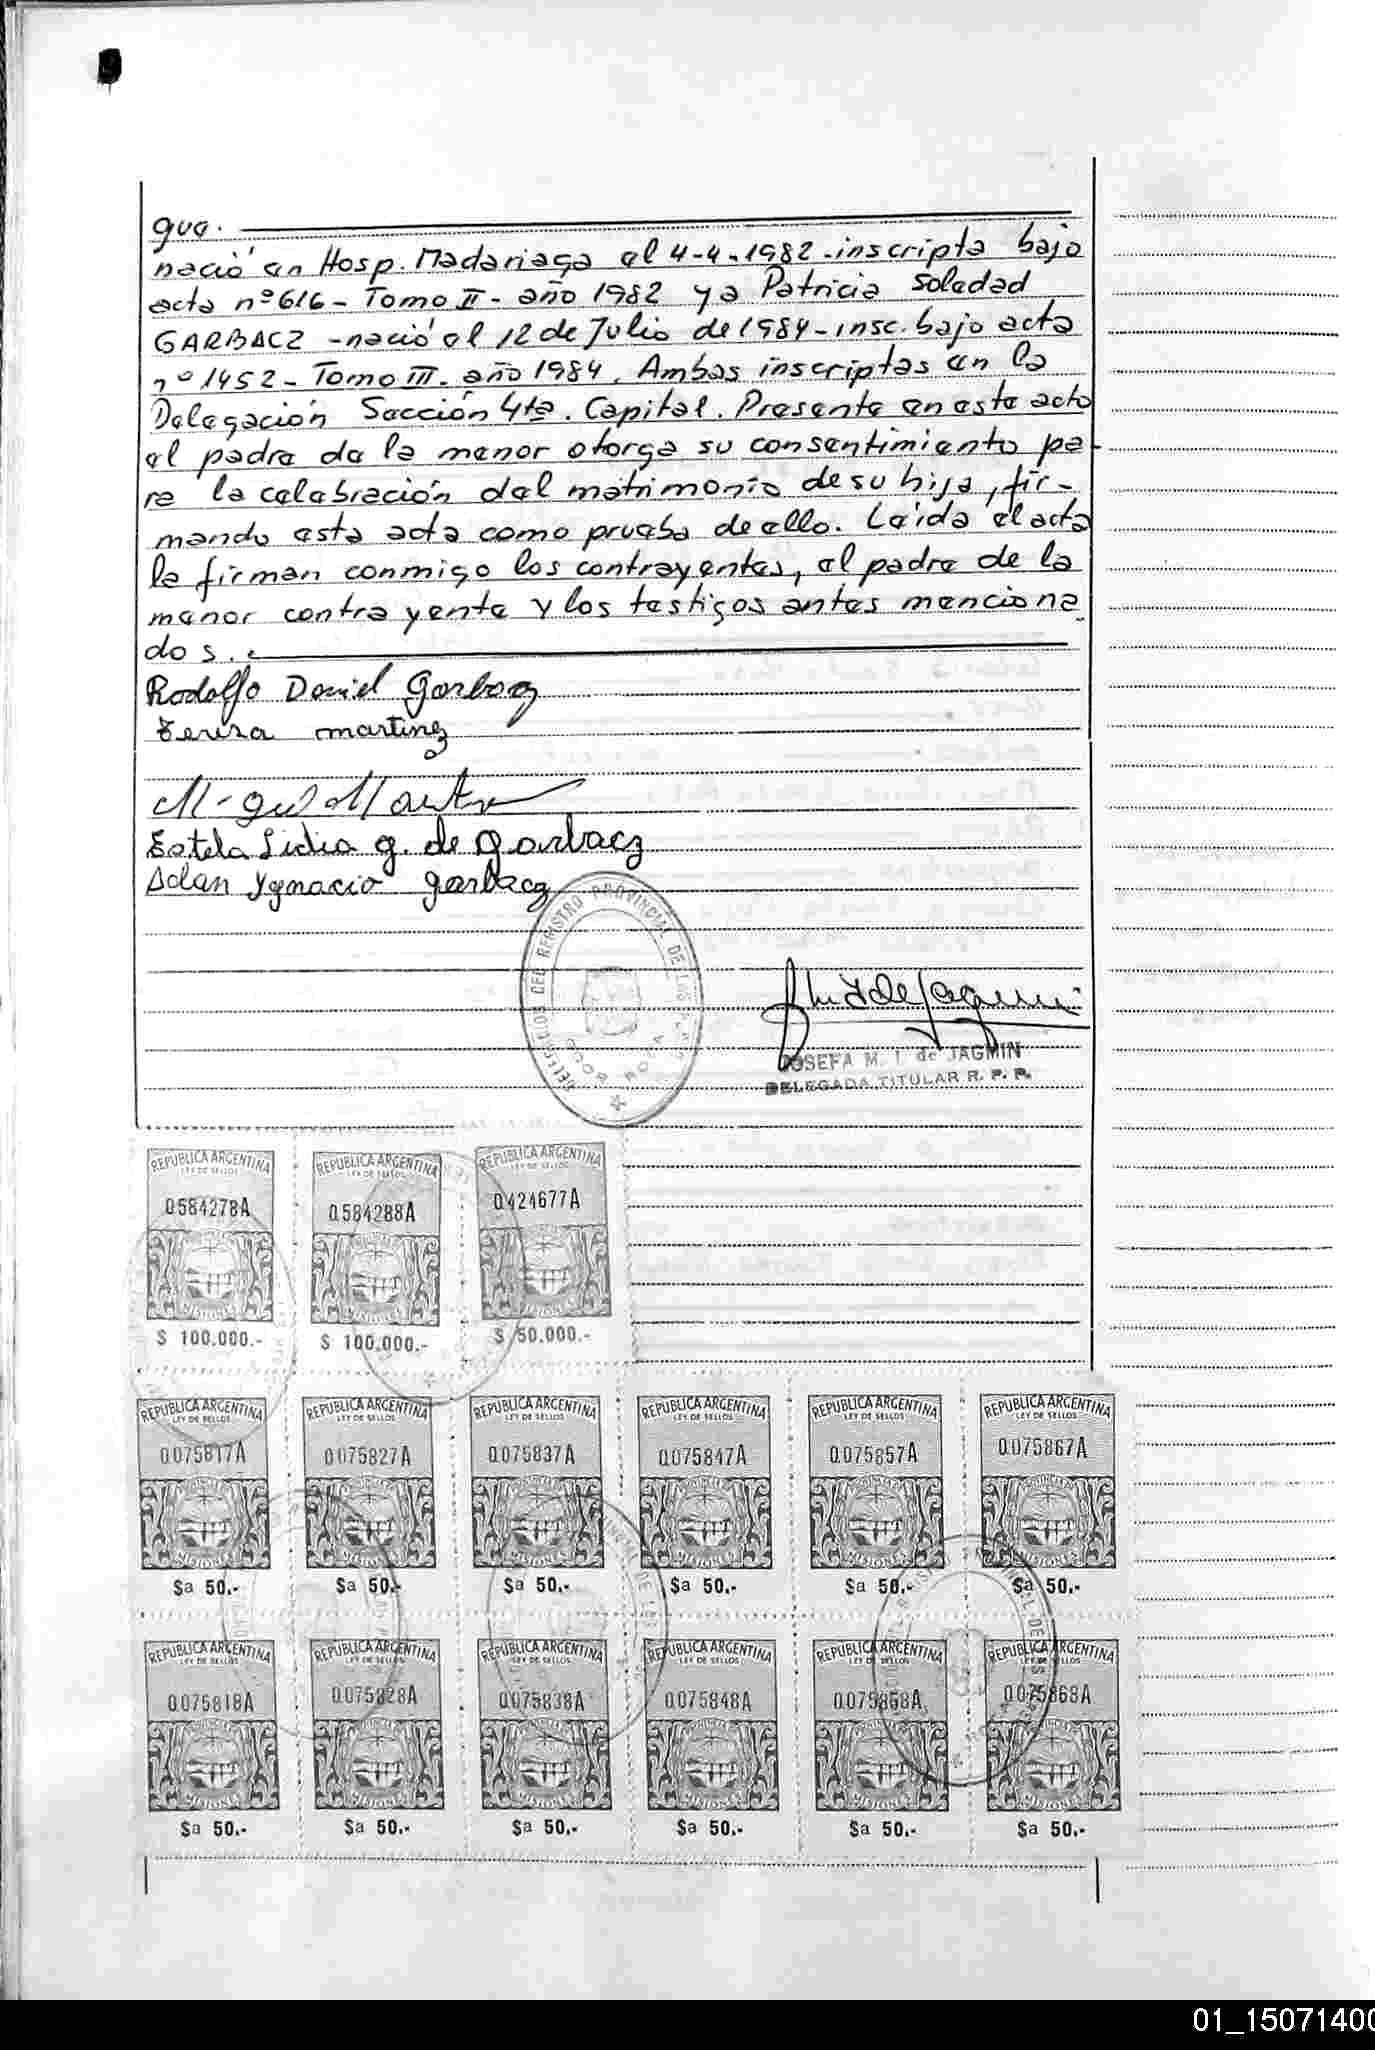 que.
nació en Hosp. Madariaga el 4-4-1982-inscripta bajo
acta nº616- Tomo II- año 1982 y a Patricia Soledad
GARBACZ -nació el 12 de Julio de 1984-insc. bajo acta
nº1452- Tomo III- año 1984. Ambas inscriptas en la
Delegación Sección 4ta. Capital. Presente en este acto
el padre de la menor otorga su consentimiento pa-
ra la celebración del matrimonio de su hija, fir-
mando esta acta como prueba de ello. Leída el acta
la firman conmigo los contrayentes, el padre de la
menor contrayente y los testigos antes menciona
dos.
Rodolfo Daniel Garbacz
martinez
Estela Lidia G. de Garbacz
Adan Ygnacio Garbacz
DEL REGISTRO PROVINCIAL DE LAS
ROCA
JOSEFA M. I. de JAGMIN
DELEGADA TITULAR R. P. P.
REPUBLICA ARGENTINA REPUBLICA ARGENTINA REPUBLICA ARGENTINA
LEY DE SELLOS LEY DE SELLOS LEY DE SELLOS
0584278A 0584288A 0424677A
MISIONES MISIONES MISIONES
$ 100.000.- $ 100.000.- $ 50.000.-
REPUBLICA ARGENTINA REPUBLICA ARGENTINA REPUBLICA ARGENTINA REPUBLICA ARGENTINA REPUBLICA ARGENTINA REPUBLICA ARGENTINA
LEY DE SELLOS LEY DE SELLOS LEY DE SELLOS LEY DE SELLOS LEY DE SELLOS LEY DE SELLOS
0075817A 0075827A 0075837A 0075847A 0075857A 0075867A
MISIONES MISIONES MISIONES MISIONES MISIONES MISIONES
$a 50.- $a 50.- $a 50.- $a 50.- $a 50.- $a 50.-
REPUBLICA ARGENTINA REPUBLICA ARGENTINA REPUBLICA ARGENTINA REPUBLICA ARGENTINA REPUBLICA ARGENTINA REPUBLICA ARGENTINA
LEY DE SELLOS LEY DE SELLOS LEY DE SELLOS LEY DE SELLOS LEY DE SELLOS LEY DE SELLOS
0075818A 0075828A 0075838A 0075848A 0075858A 0075868A
MISIONES MISIONES MISIONES MISIONES MISIONES MISIONES
$a 50.- $a 50.- $a 50.- $a 50.- $a 50.- $a 50.-
01_15071400